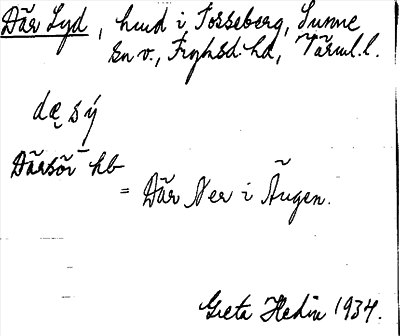 Där Syd, hmd i Torsseberg, Sunne
sn v., Fryksd. hd, Värml. l.
dæ sý
Därsör hb
= Där Ner i Ängen.
Greta Hedin 1934.